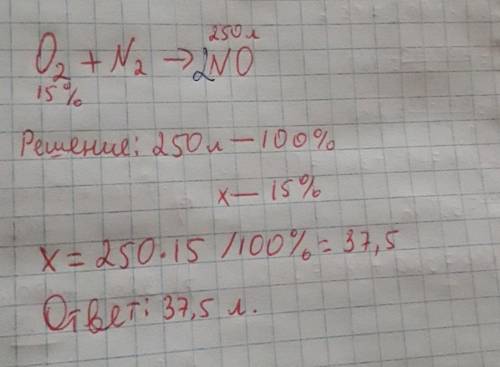 250л
O₂ + N₂ → 2NO
15%
Решение: 250л — 100%
x — 15%
x = 250 · 15 /100% = 37,5
Ответ: 37,5 л.